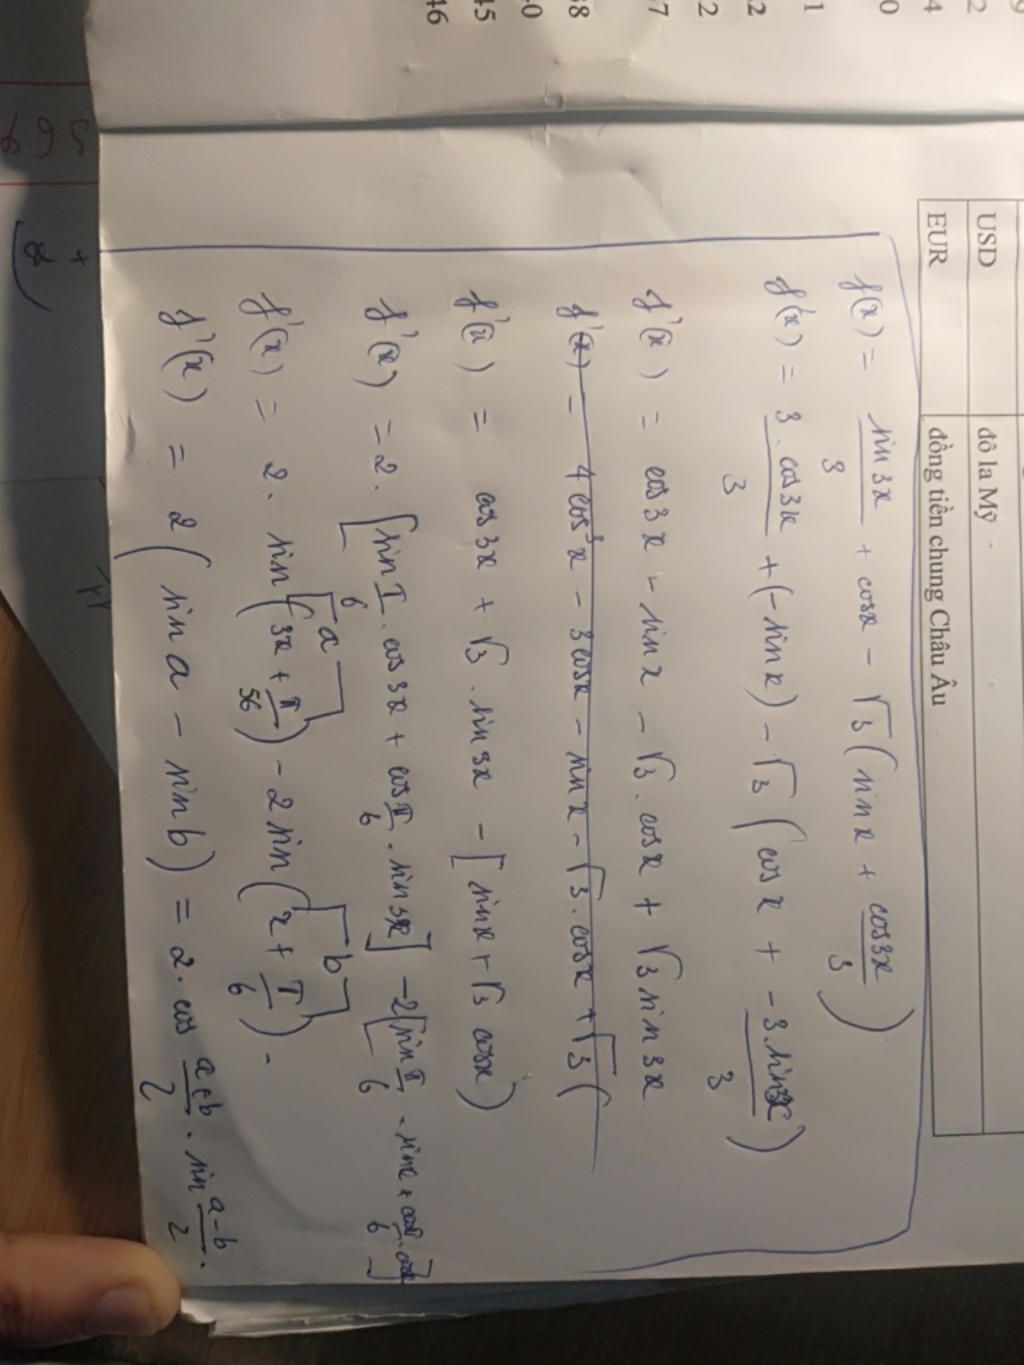 USD đô la Mỹ
EUR đồng tiền chung Châu Âu
f(x) = sin3x/3 + cosx - √3(sinx + cos3x/3)
f'(x) = 3.cos3x/3 + (-sinx) - √3(cosx + -3.sin3x/3)
f'(x) = cos3x - sinx - √3.cosx + √3sin3x
f'(x) = 4cos³x - 3cosx - sinx - √3.cosx + √3(
f'(x) = cos3x + √3.sin3x - [sinx + √3cosx)
f'(x) = 2.[sin π/6 . cos3x + cos π/6 . sin3x] - 2[sin π/6 . sinx + cos π/6 . cosx]
a b
f'(x) = 2.sin(3x + π/6) - 2sin(x + π/6).
f'(x) = 2(sina - sinb) = 2.cos a+b/2 . sin a-b/2.
9
2
4
0
1
32
2
37
38
40
45
46